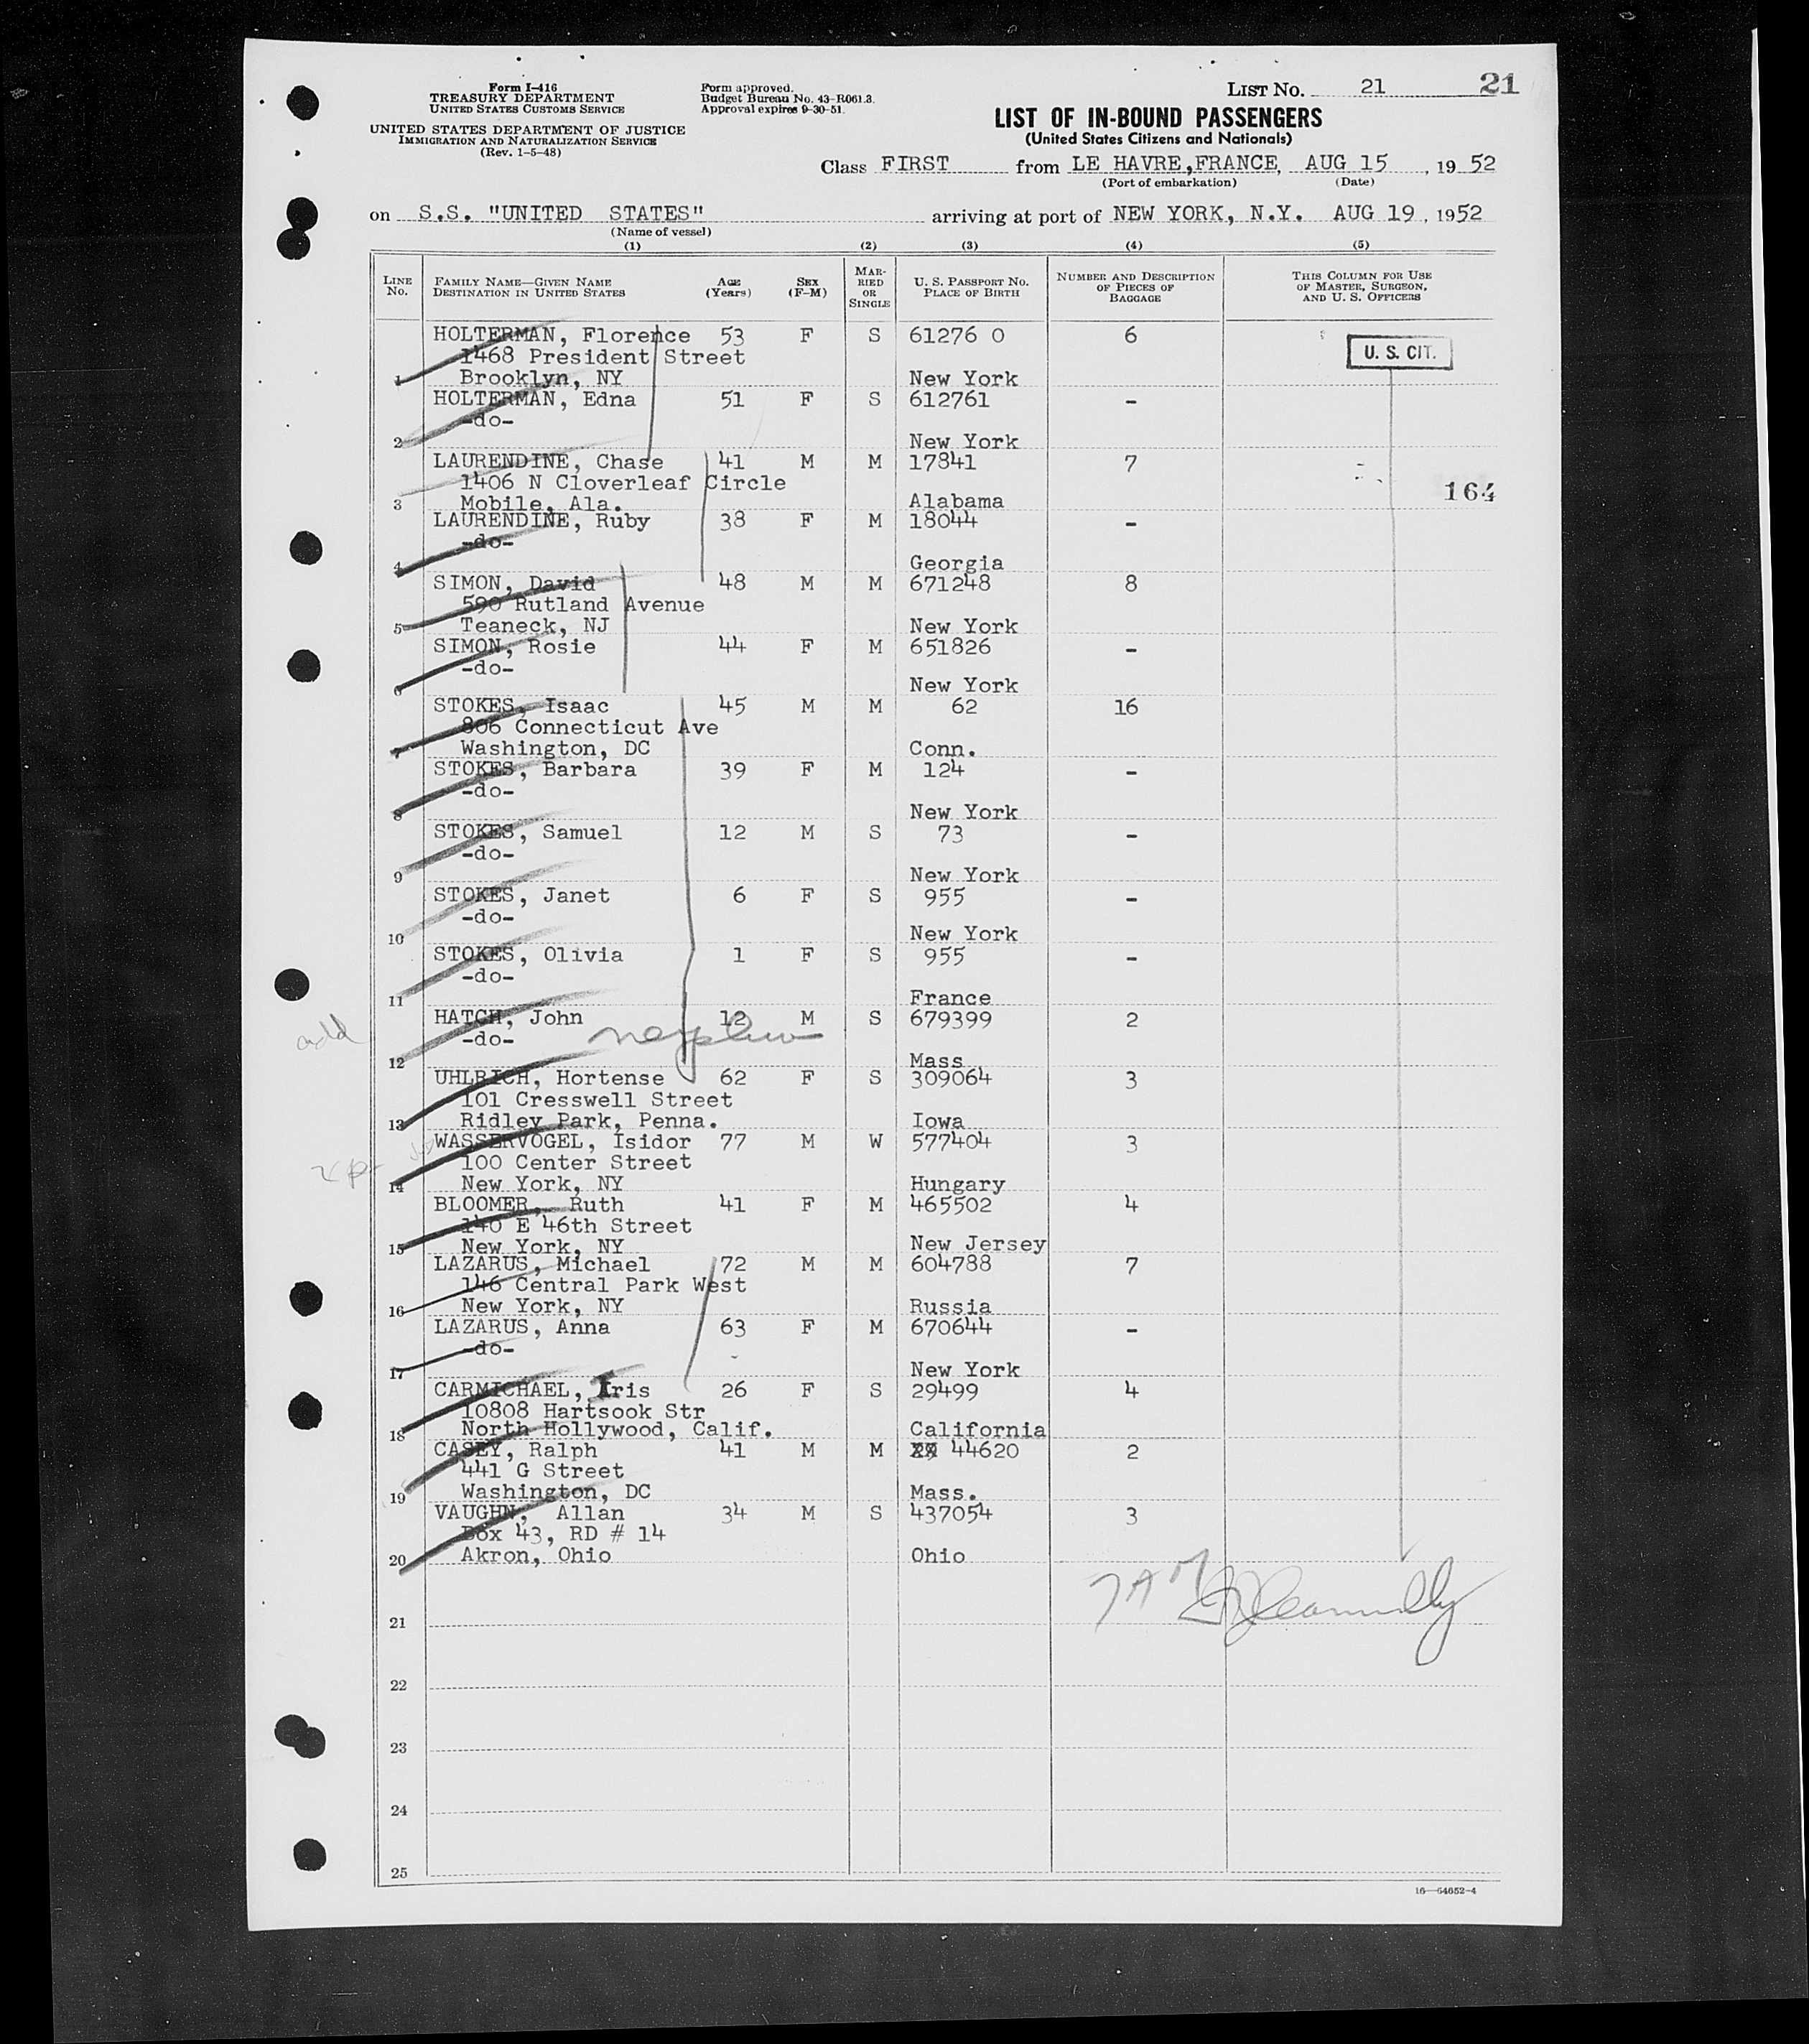 Form I-416
TREASURY DEPARTMENT
UNITED STATES CUSTOMS SERVICE
UNITED STATES DEPARTMENT OF JUSTICE
IMMIGRATION AND NATURALIZATION SERVICE
(Rev. 1-5-48)
Form approved.
Budget Bureau No. 43-R061.3.
Approval expires 9-30-51.
LIST No. 21 21
LIST OF IN-BOUND PASSENGERS
(United States Citizens and Nationals)
Class FIRST from LE HAVRE, FRANCE, AUG 15, 19 52
(Port of embarkation) (Date)
on S.S. "UNITED STATES" arriving at port of NEW YORK, N.Y. AUG 19, 1952
(Name of vessel)
(1) (2) (3) (4) (5)
LINE No. FAMILY NAME—GIVEN NAME DESTINATION IN UNITED STATES AGE (Years) SEX (F-M) MARRIED OR SINGLE U. S. PASSPORT NO. PLACE OF BIRTH NUMBER AND DESCRIPTION OF PIECES OF BAGGAGE THIS COLUMN FOR USE OF MASTER, SURGEON, AND U. S. OFFICERS
HOLTERMAN, Florence 53 F S 61276 0 6
U. S. CIT.
1468 President Street
1 Brooklyn, NY New York
HOLTERMAN, Edna 51 F S 612761 -
-do-
2 New York
LAURENDINE, Chase 41 M M 17841 7
1406 N Cloverleaf Circle
164
3 Mobile, Ala. Alabama
LAURENDINE, Ruby 38 F M 18044 -
-do-
4 Georgia
SIMON, David 48 M M 671248 8
590 Rutland Avenue
5 Teaneck, NJ New York
SIMON, Rosie 44 F M 651826 -
-do-
6 New York
STOKES, Isaac 45 M M 62 16
806 Connecticut Ave
7 Washington, DC Conn.
STOKES, Barbara 39 F M 124 -
-do-
8 New York
STOKES, Samuel 12 M S 73 -
-do-
9 New York
STOKES, Janet 6 F S 955 -
-do-
10 New York
STOKES, Olivia 1 F S 955 -
-do-
11 France
HATCH, John 12 M S 679399 2
add -do- nephew
12 Mass
UHLRICH, Hortense 62 F S 309064 3
101 Cresswell Street
13 Ridley Park, Penna. Iowa
WASSERVOGEL, Isidor 77 M W 577404 3
100 Center Street
14 New York, NY Hungary
BLOOMER, Ruth 41 F M 465502 4
140 E 46th Street
15 New York, NY New Jersey
LAZARUS, Michael 72 M M 604788 7
146 Central Park West
16 New York, NY Russia
LAZARUS, Anna 63 F M 670644 -
-do-
17 New York
CARMICHAEL, Iris 26 F S 29499 4
10808 Hartsook Str
18 North Hollywood, Calif. California
CASEY, Ralph 41 M M 44620 2
441 G Street
19 Washington, DC Mass.
VAUGHN, Allan 34 M S 437054 3
Box 43, RD # 14
20 Akron, Ohio Ohio
21
22
23
24
25
16—54652-4